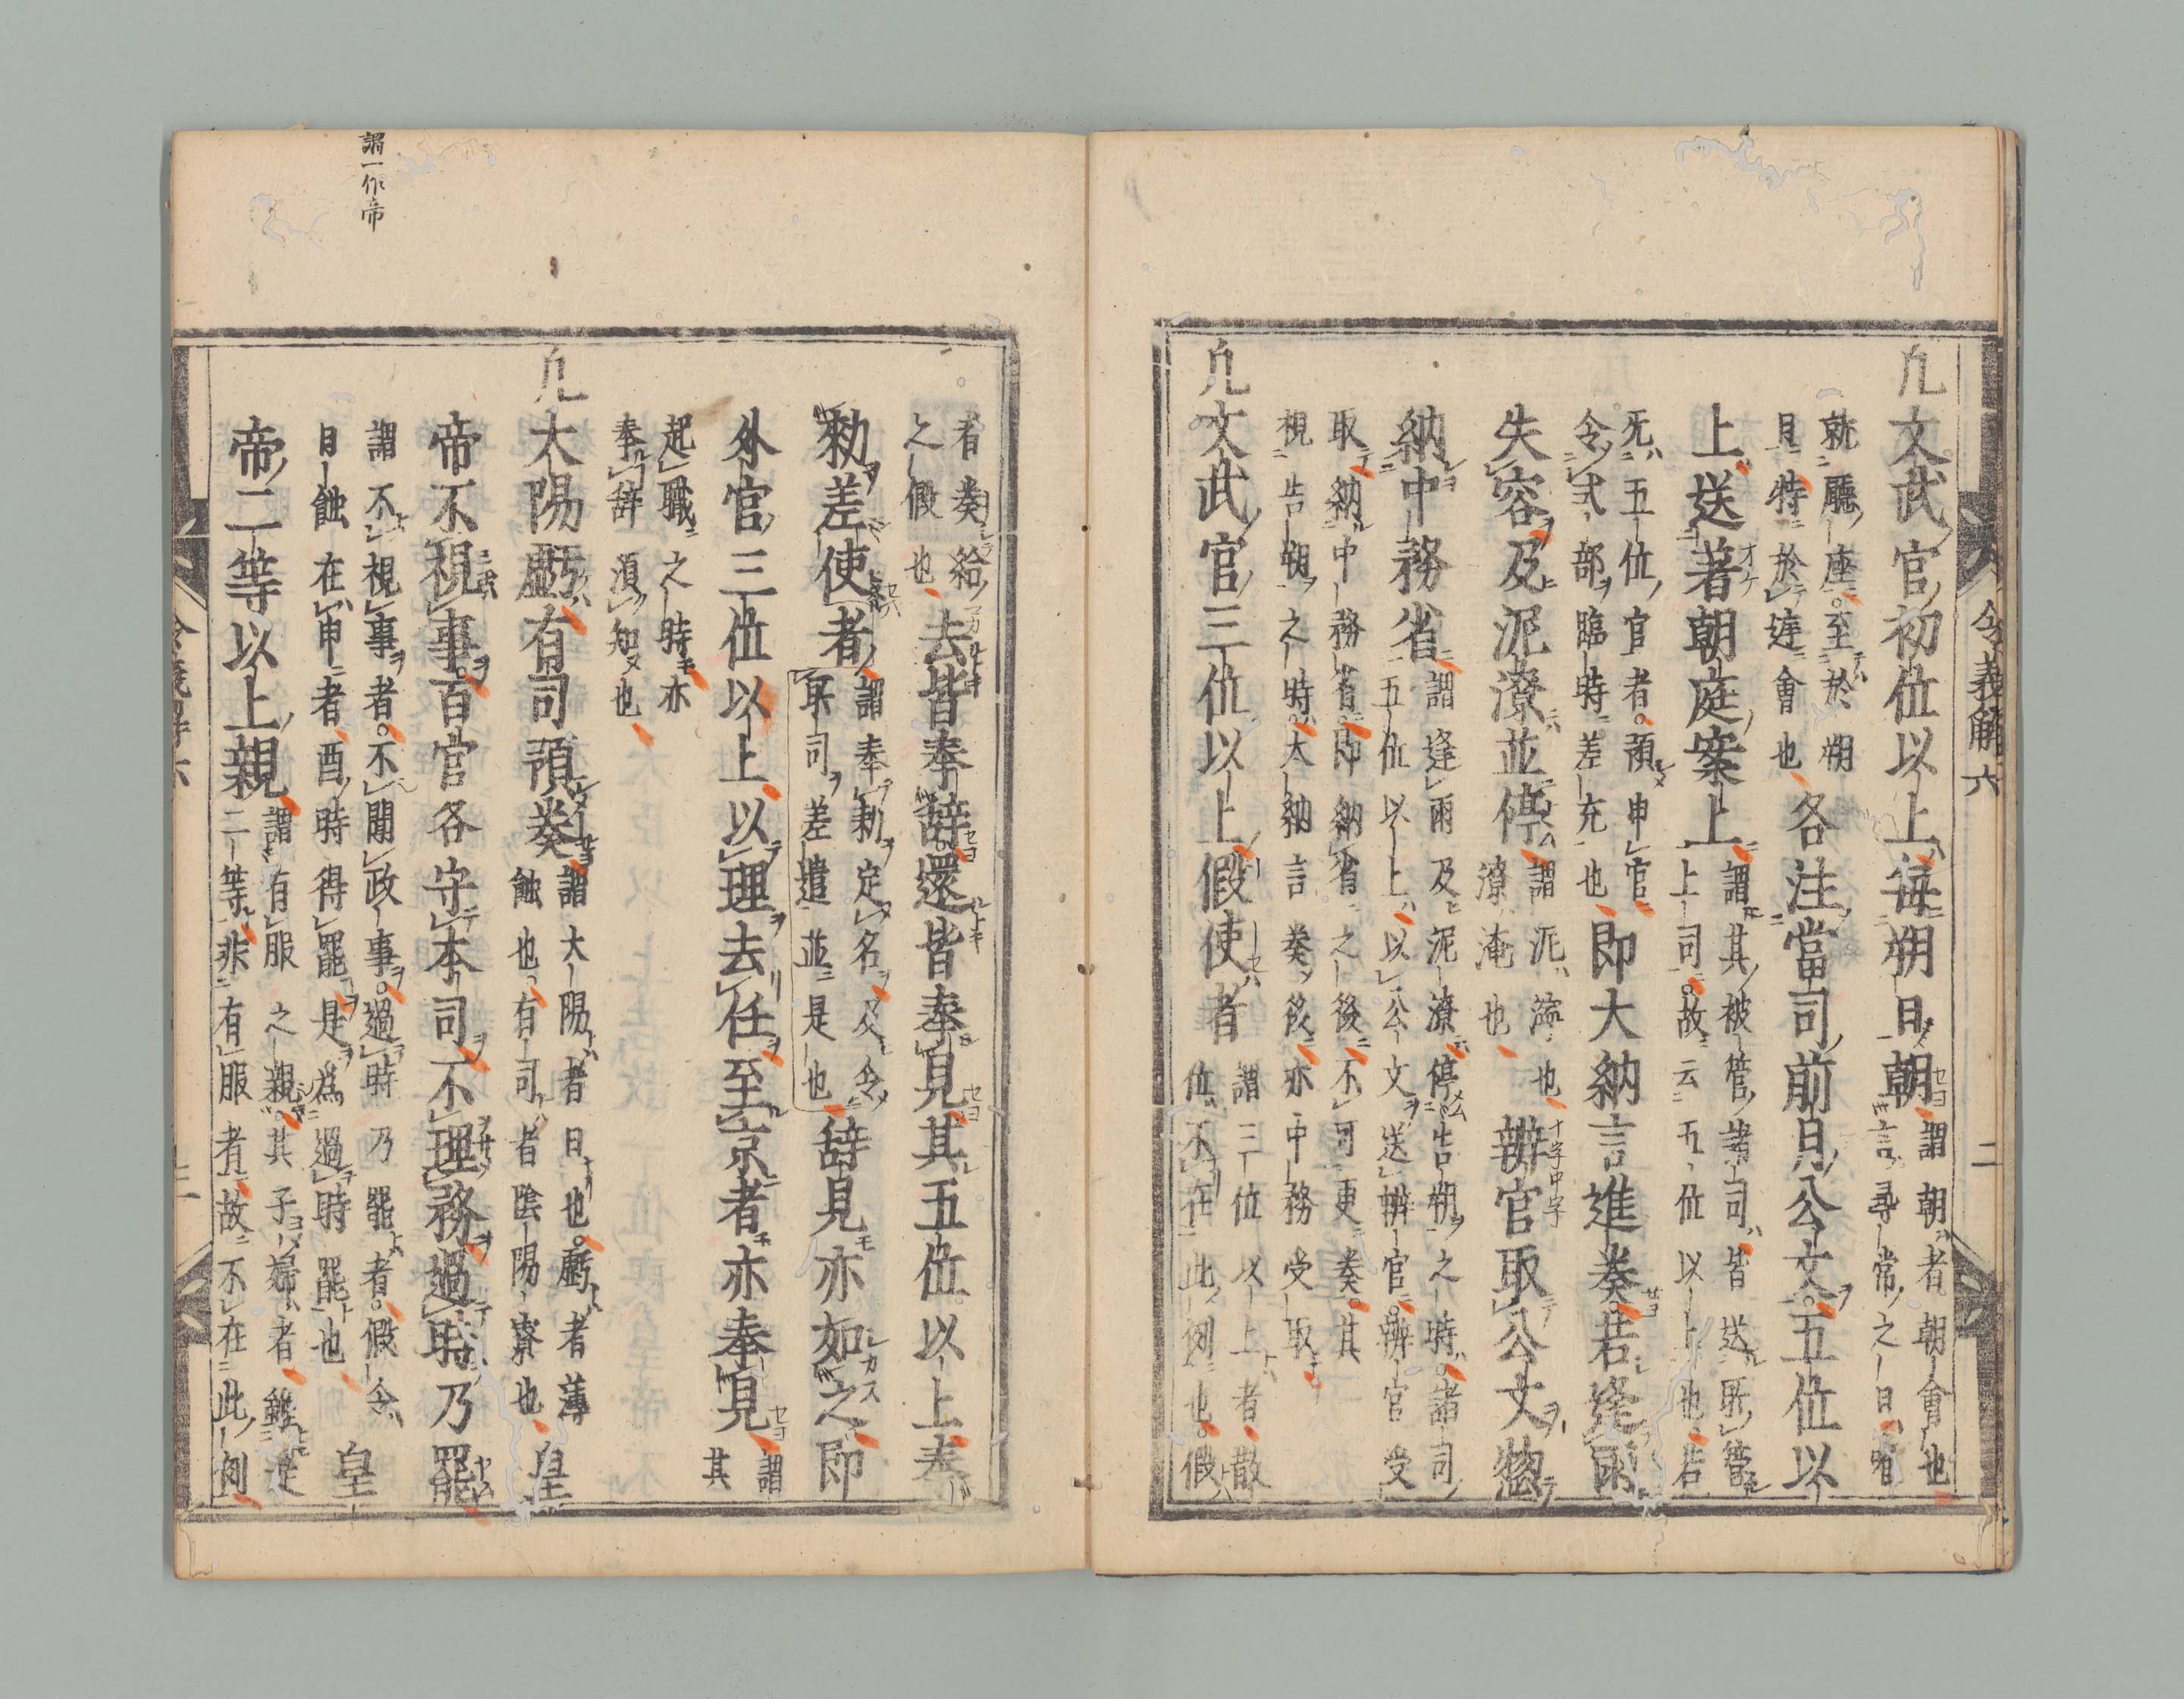 令義解六
二
凡文武官初位以上毎朔日朝
謂朝者朝會也
言尋常之日唯
就廳座至於朔
日特於庭會也
各注當司前月公文五位以
上送著朝庭案上
謂其被管諸司皆送所管
上司故云五位以上也若
无五位官者預申官
令式部臨時差充也
即大納言進奏若逢雨
失容及泥潦並停
謂泥濘也
潦淹也
辨官取公文惣
十字中字
納中務省
謂逢雨及泥潦停告朔之時諸司
五位以上以公文送辨官辨官受
取納中務省即納省之後不可更奏其
視告朔之時大納言奏後亦中務受取
凡文武官三位以上假使者
謂三位以上者散
位不在此例也假
者奏給
之假也
去皆奉辭還皆奉見其五位以上奉
勅差使者
謂奉勅定名及令
所司差遣並是也
辭見亦如之即
外官三位以上以理去任至京者亦奉見
謂
其
起職之時亦
奉辭須知也
凡太陽虧有司預奏
謂大陽者日也虧者薄
蝕也有司者陰陽寮也
皇
帝不視事百官各守本司不理務過時乃罷
謂一作帝
謂不視事者不聞政事過時乃罷者假令
日蝕在申者酉時得罷是為過時罷也
皇
帝二等以上親
謂有服之親其子婦者雖是
二等非有服者故不在此例
令義解六